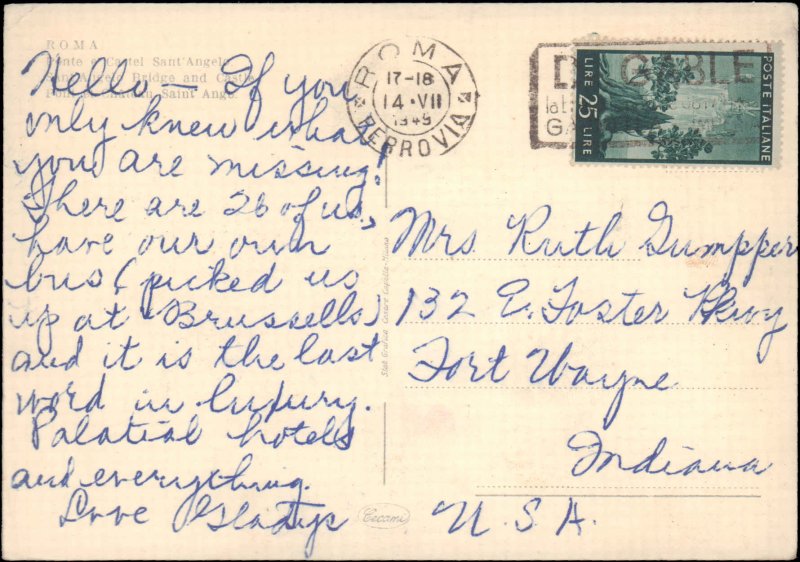 ROMA
Ponte e Castel Sant'Angelo
San Angelo Bridge and Castle
Pont et Château Saint Ange
Hello – If you
only knew what
you are missing!
There are 26 of us,
have our own
bus (picked us
up at Brussells)
and it is the last
word in luxury.
Palatial hotels
and everything.
Love Gladys
ROMA
17-18
14·VII
1949
FERROVIA
CABLE
POSTE ITALIANE
LIRE 25 LIRE
Mrs Ruth Gumpper
132 E. Foster Pkwy
Fort Wayne
Indiana
U.S.A.
Cecami